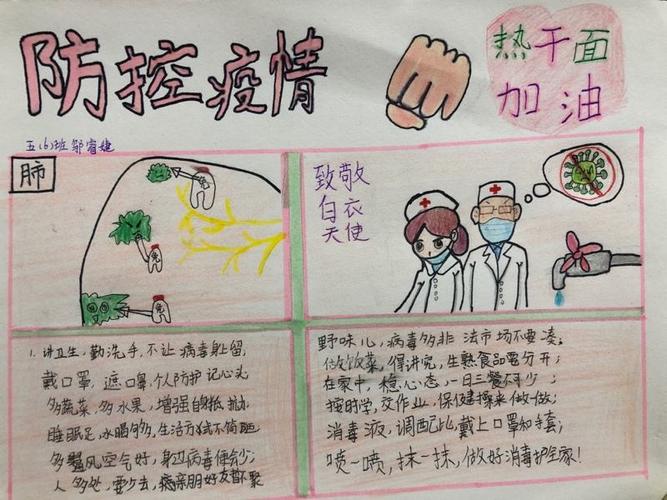 防控疫情
热干面
加油
五(6)班 邹睿婕
肺
免
免
免
致敬
白衣
天使
1. 讲卫生，勤洗手，不让病毒身上留
戴口罩，遮口鼻，个人防护记心头
多蔬菜，多水果，增强自身抵抗力
睡眠足，水喝够多，生活方式不偷
多通风空气好，身边病毒便会少；
人多处，要少去，亲朋好友暂不聚
野味儿，病毒多，非法市场不要凑。
做饭菜，得讲究，生熟食品需分开；
在家中，稳心态，一日三餐不可少；
按时学，交作业，保健操来做一做；
消毒液，调配比，戴上口罩和手套；
喷一喷，抹一抹，做好消毒护全家！